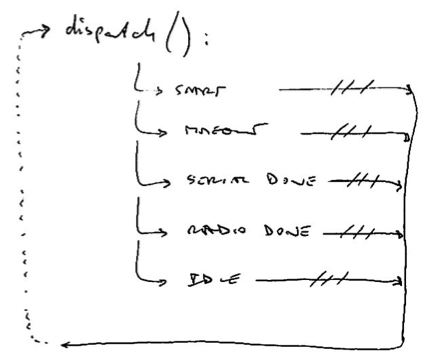 dispatch():
START
TIMEOUT
SERIAL DONE
RADIO DONE
IDLE